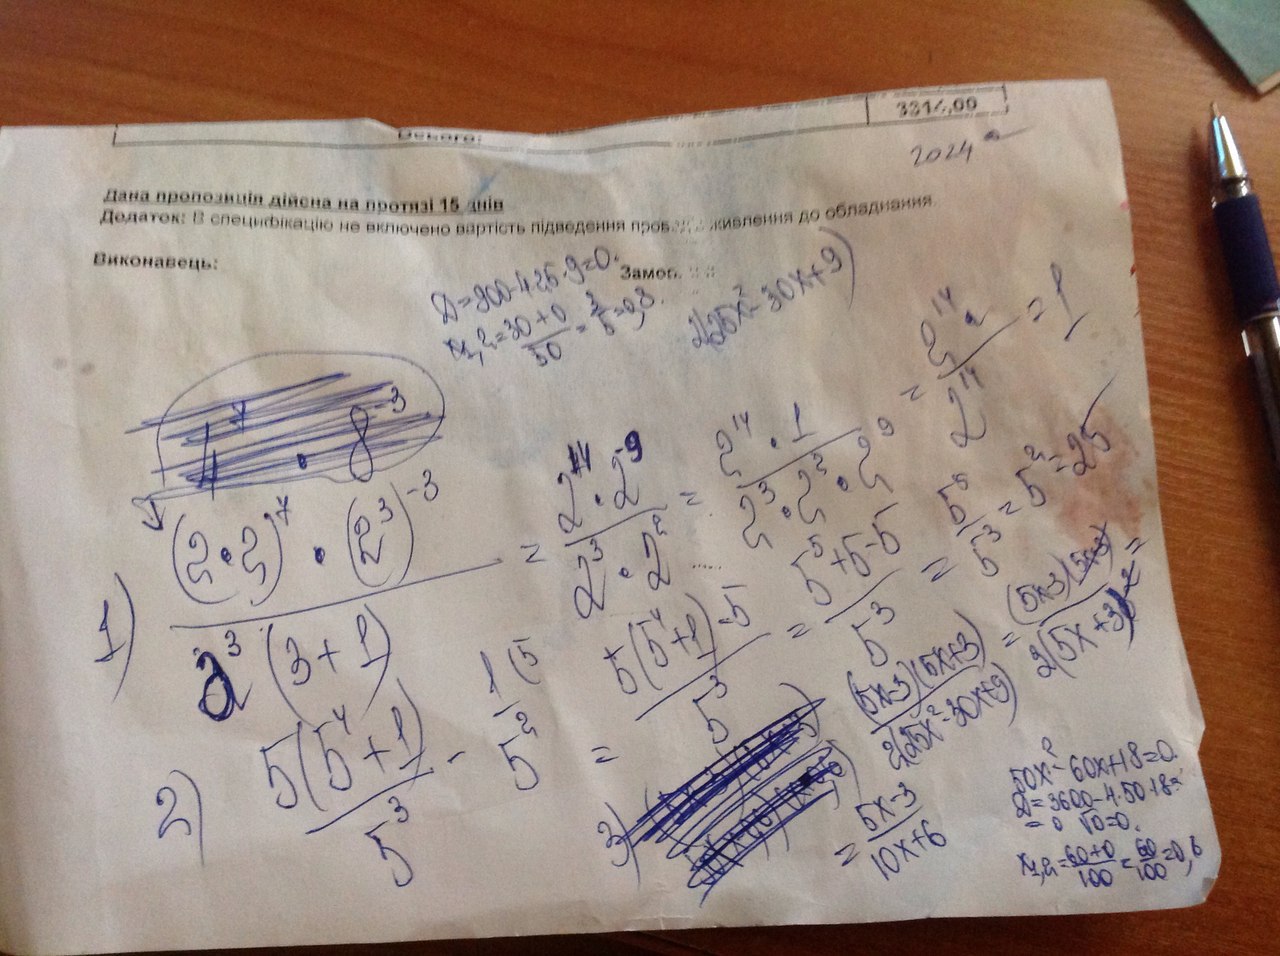 Всього:
3314,00
2024
Дана пропозиція дійсна на протязі 15 днів
Додаток: В специфікацію не включено вартість підведення живлення до обладнання.
Виконавець:
D=900-4·25·9=0.
x₁,₂=30+0/50=3/5=0,
2(25x²-30x+9)
4⁷ · 8⁻³
1) (2·2)⁷ · (2³)⁻³ / 2³(3+1) = 2¹⁴·2⁻⁹ / 2³·2² = 2¹⁴·1 / 2³·2²·2⁹ = 2¹⁴ / 2¹⁴ = 1
2) 5(5⁴+1) / 5³ - 1(5 / 5² = 5(5⁴+1)-5 / 5³ = 5⁵+5-5 / 5³ = 5⁵ / 5³ = 5² = 25
3) (5x-3)(5x+3) / 2(25x²-30x+9) =
= 5x-3 / 10x+6
50x²-60x+18=0.
D=3600-4·50·18=
=0 √0=0.
x₁,₂=60+0/100=60/100=0,6